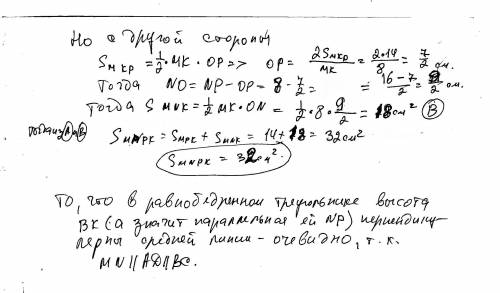 Но с другой стороны
S мкр = 1/2 · MK · OP => OP = 2Sмкр / MK = 2·14 / 8 = 7/2 см.
Тогда NO = NP - OP = 8 - 7/2 = = 16-7 / 2 = 9/2 см.
Тогда S MNK = 1/2 MK · ON = 1/2 · 8 · 9/2 = 18 см² (B)
(A) и (B) SMNPK = SMPK + SMNK = 14 + 18 = 32 см²
SMNPK = 32 см².
То, что в равнобедренном треугольнике высота
BK (а значит параллельная ей NP) перпендику-
лярны средней линии - очевидно, т.к.
MN || AD || BC.